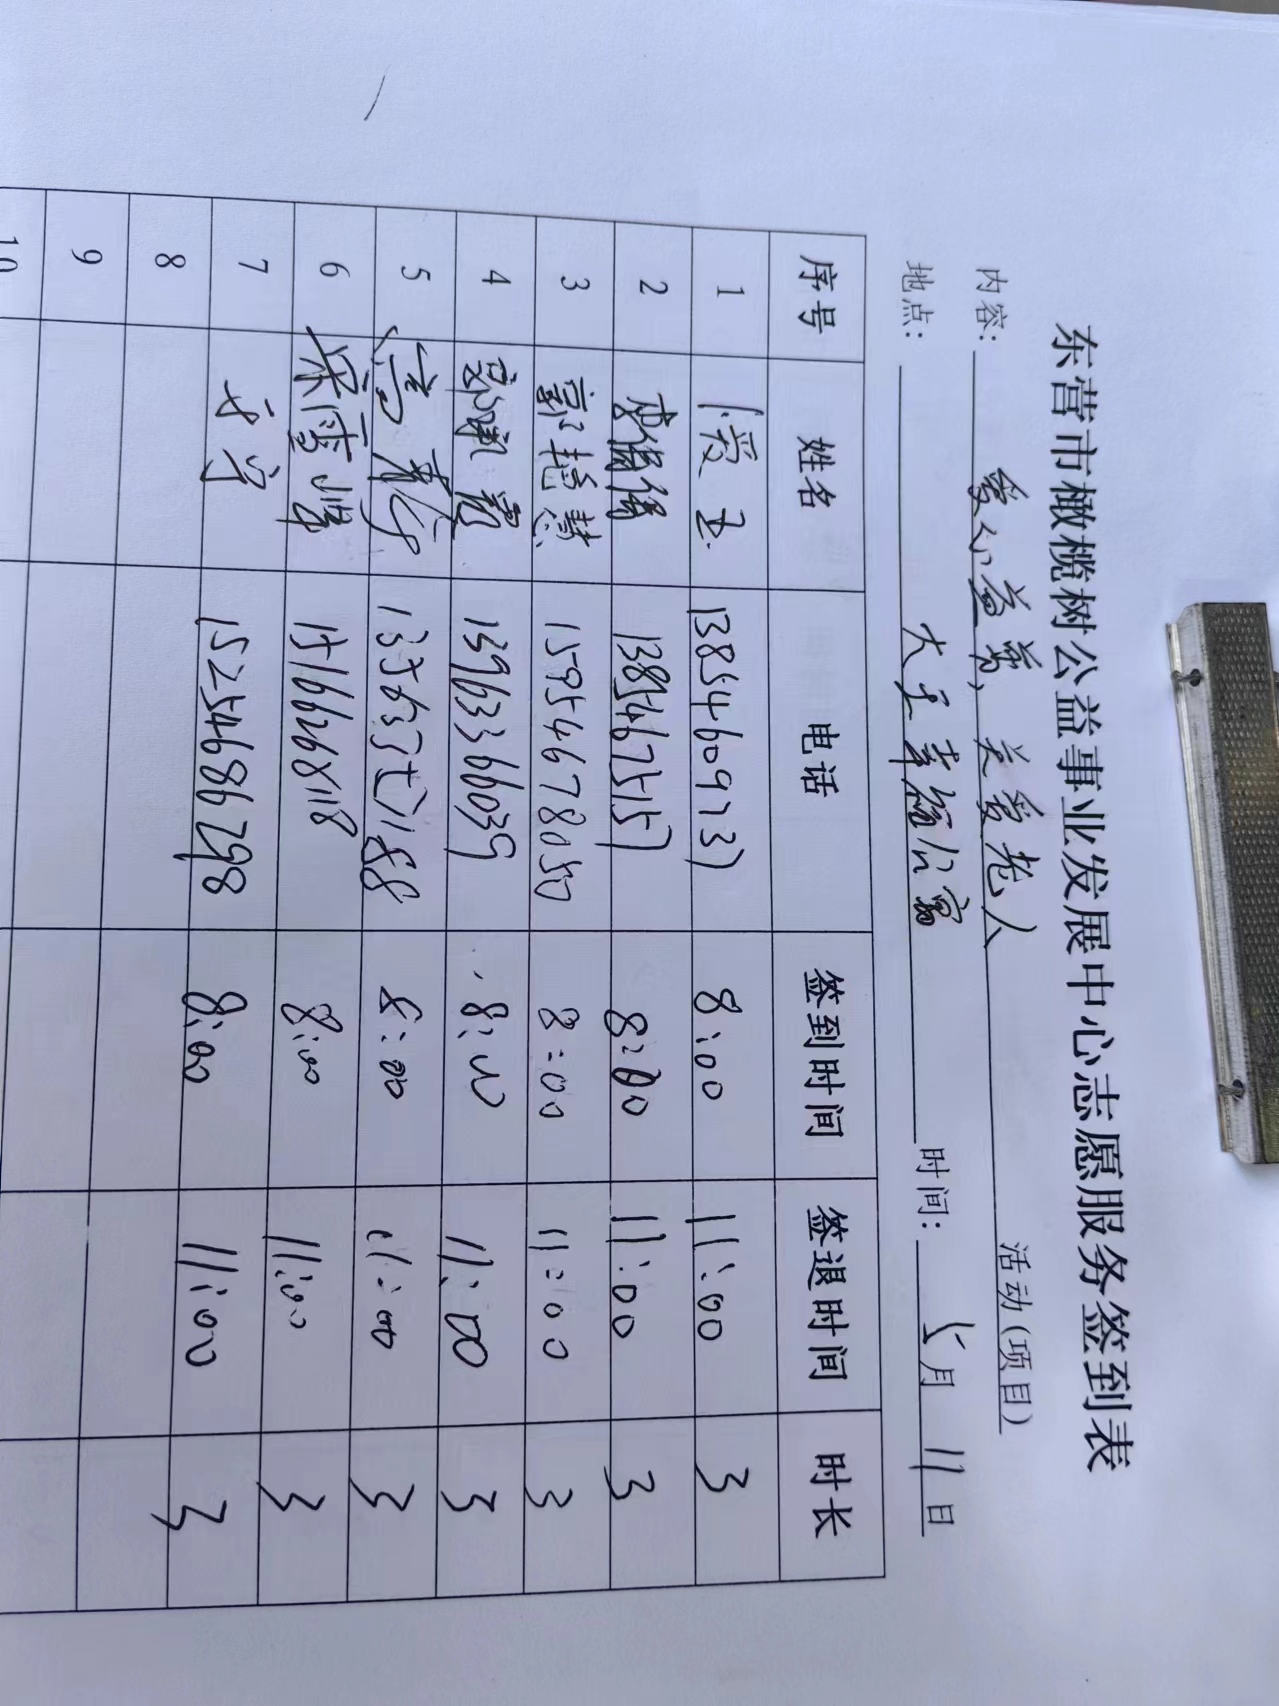 东营市橄榄树公益事业发展中心志愿服务签到表
内容： 爱心益剪、关爱老人 活动(项目)
地点： 大王幸福公寓 时间： 5月 11日
序号 姓名 电话 签到时间 签退时间 时长
1 13854609731 8:00 11:00 3
2 13854675157 8:00 11:00 3
3 郭艳慧 15954678050 8:00 11:00 3
4 13963366039 8:00 11:00 3
5 8:00 11:00 3
6 宋雪峰 8:00 11:00 3
7 15254686298 8:00 11:00 3
8
9
10